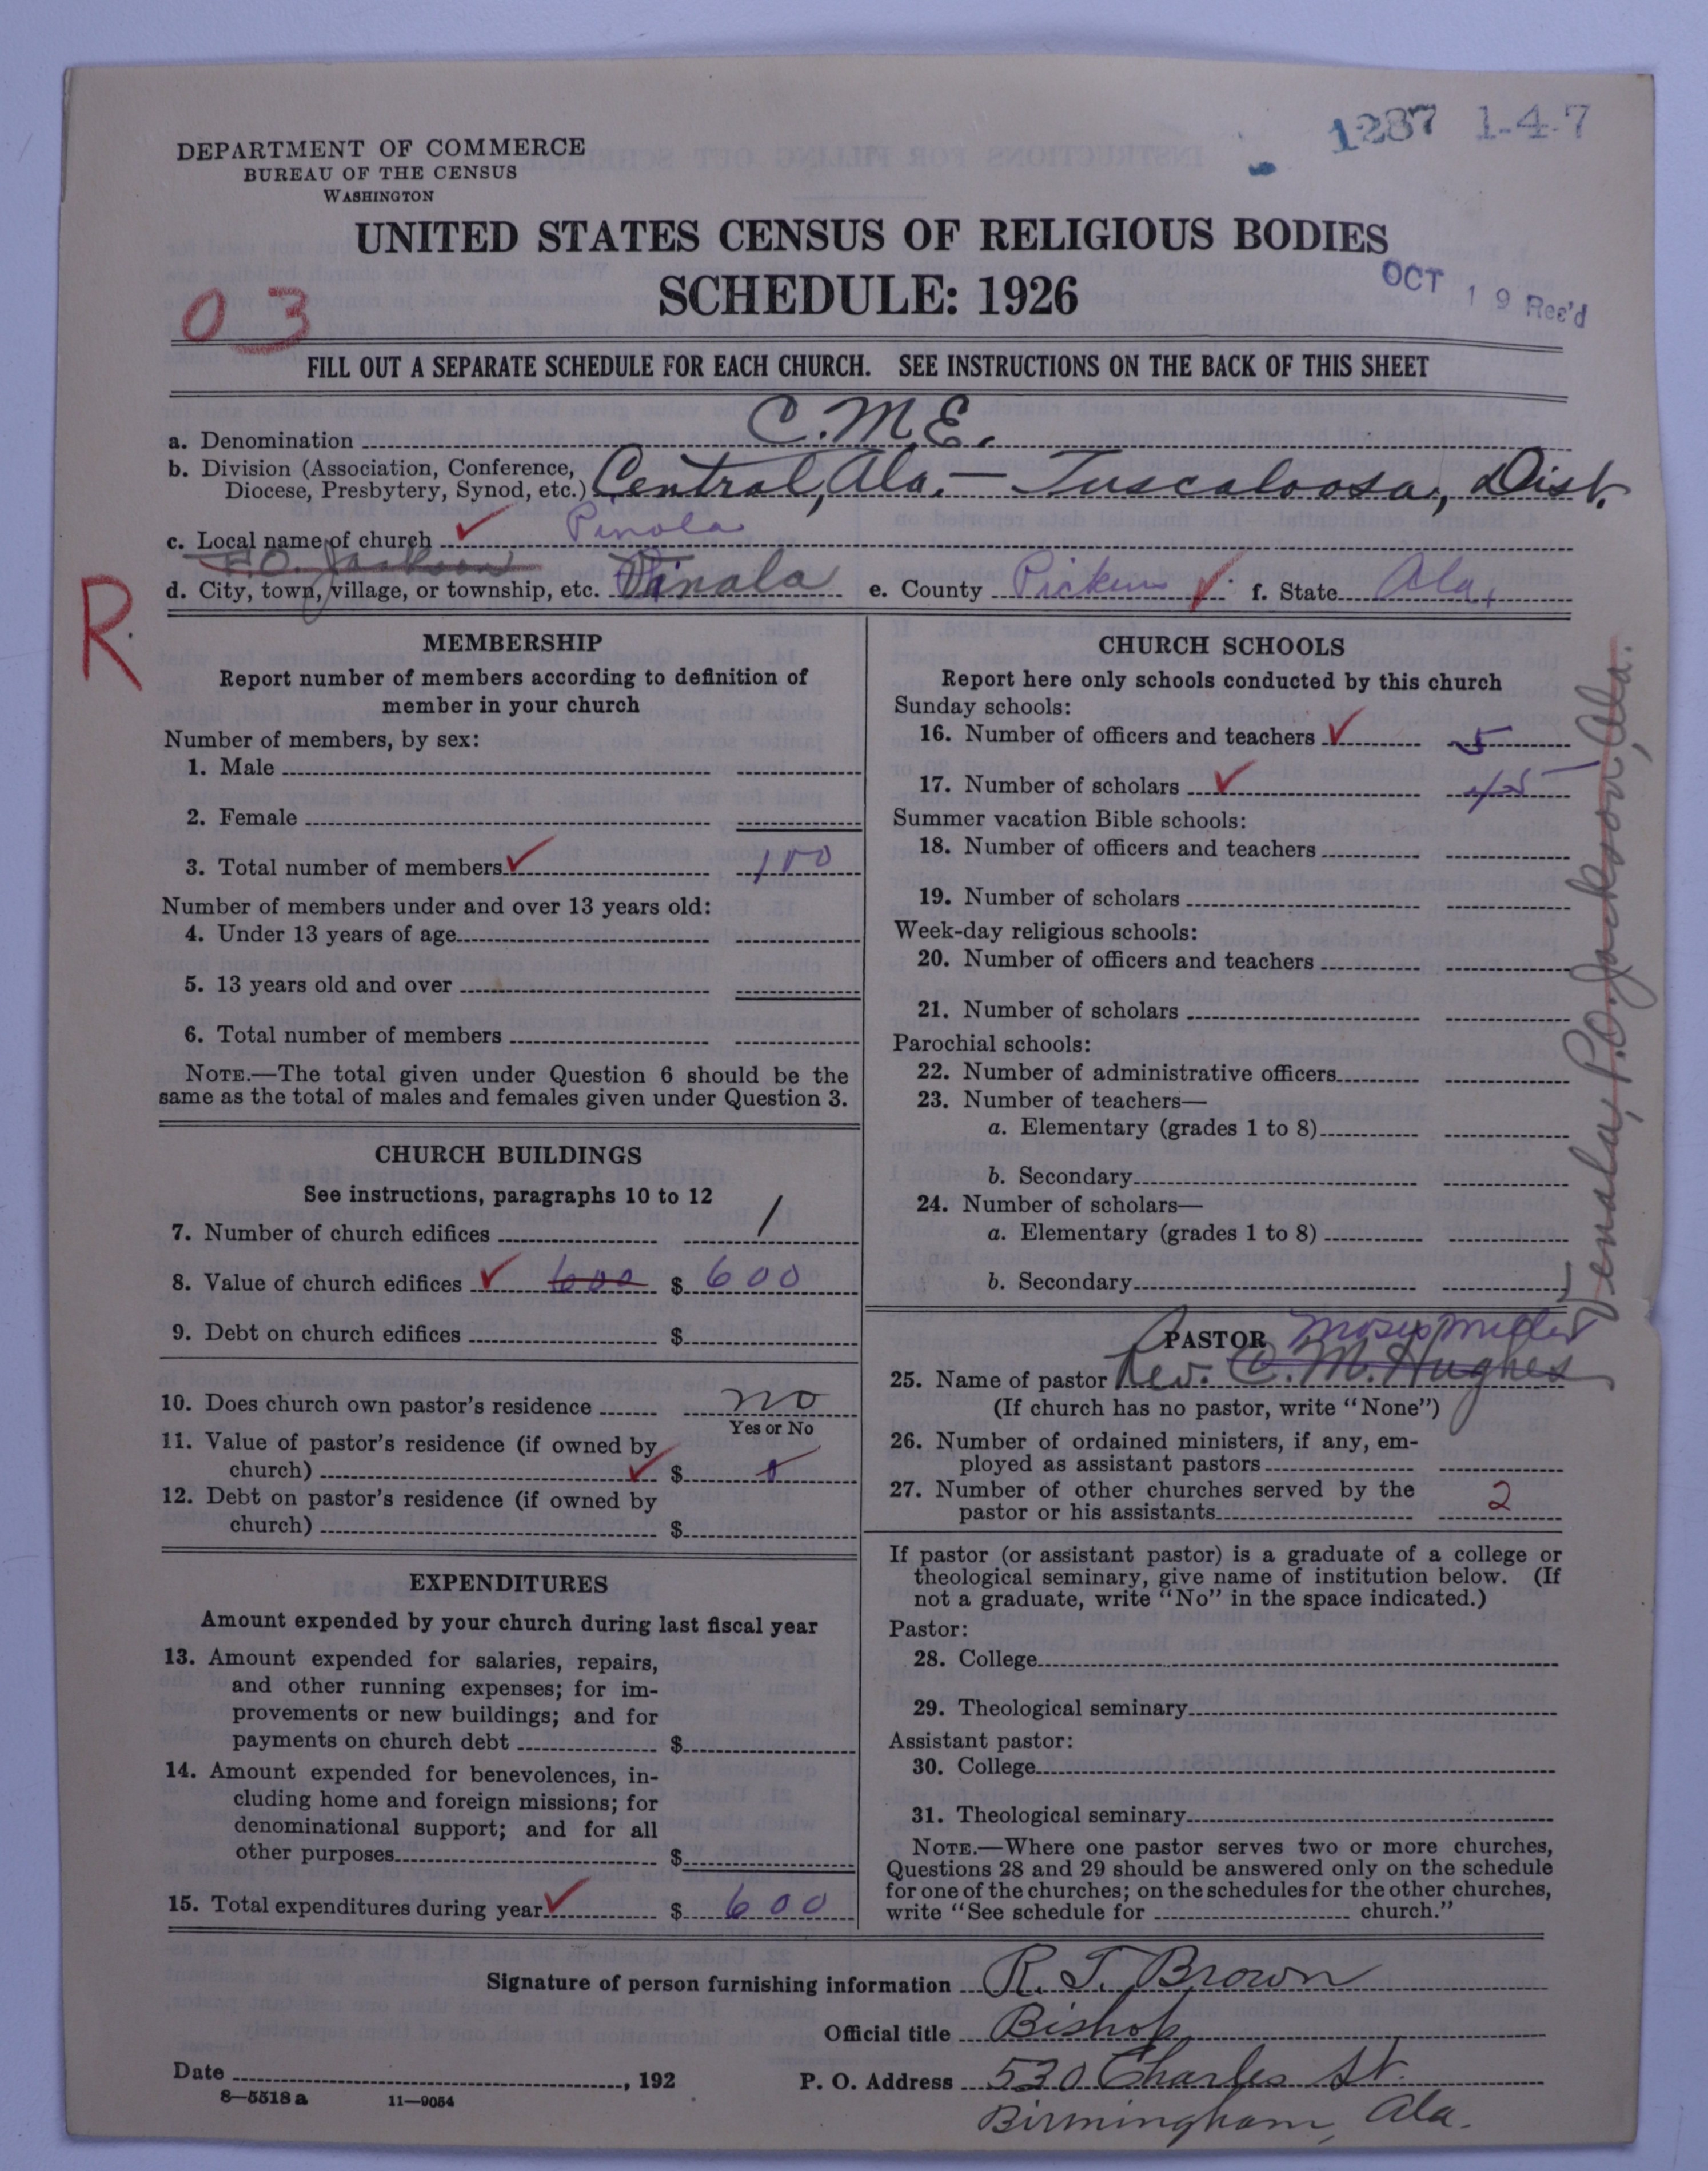 1287 1-4-7
DEPARTMENT OF COMMERCE
BUREAU OF THE CENSUS
WASHINGTON
UNITED STATES CENSUS OF RELIGIOUS BODIES
SCHEDULE: 1926
OCT 19 Rec'd
03
FILL OUT A SEPARATE SCHEDULE FOR EACH CHURCH. SEE INSTRUCTIONS ON THE BACK OF THIS SHEET
a. Denomination C.M.E.
b. Division (Association, Conference, Diocese, Presbytery, Synod, etc.) Central, Ala. — Tuscaloosa, Dist.
c. Local name of church Pinola
P.O. Jackson
d. City, town, village, or township, etc. Pinola e. County Pickens f. State Ala.
R
MEMBERSHIP
Report number of members according to definition of
member in your church
Number of members, by sex:
1. Male
2. Female
3. Total number of members 100
Number of members under and over 13 years old:
4. Under 13 years of age
5. 13 years old and over
6. Total number of members
NOTE.—The total given under Question 6 should be the
same as the total of males and females given under Question 3.
CHURCH BUILDINGS
See instructions, paragraphs 10 to 12
7. Number of church edifices 1
8. Value of church edifices 600 $ 600
9. Debt on church edifices $
10. Does church own pastor's residence no
Yes or No
11. Value of pastor's residence (if owned by
church) $
12. Debt on pastor's residence (if owned by
church) $
EXPENDITURES
Amount expended by your church during last fiscal year
13. Amount expended for salaries, repairs,
and other running expenses; for im-
provements or new buildings; and for
payments on church debt $
14. Amount expended for benevolences, in-
cluding home and foreign missions; for
denominational support; and for all
other purposes $
15. Total expenditures during year $ 600
CHURCH SCHOOLS
Report here only schools conducted by this church
Sunday schools:
16. Number of officers and teachers 5
17. Number of scholars 45
Summer vacation Bible schools:
18. Number of officers and teachers
19. Number of scholars
Week-day religious schools:
20. Number of officers and teachers
21. Number of scholars
Parochial schools:
22. Number of administrative officers
23. Number of teachers—
a. Elementary (grades 1 to 8)
b. Secondary
24. Number of scholars—
a. Elementary (grades 1 to 8)
b. Secondary
Venala, P.O. Jackson, Ala.
PASTOR Moses Miller
25. Name of pastor Rev. C. M. Hughes
(If church has no pastor, write "None")
26. Number of ordained ministers, if any, em-
ployed as assistant pastors
27. Number of other churches served by the
pastor or his assistants 2
If pastor (or assistant pastor) is a graduate of a college or
theological seminary, give name of institution below. (If
not a graduate, write "No" in the space indicated.)
Pastor:
28. College
29. Theological seminary
Assistant pastor:
30. College
31. Theological seminary
NOTE.—Where one pastor serves two or more churches,
Questions 28 and 29 should be answered only on the schedule
for one of the churches; on the schedules for the other churches,
write "See schedule for church."
Signature of person furnishing information R. T. Brown
Official title Bishop
Date , 192 P. O. Address 530 Charles St.
8—5518 a 11—9054
Birmingham, Ala.